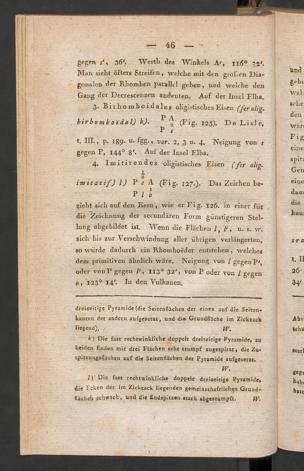 — 46 —
gegen s', 36'. Werth des Winkels A', 116° 32'.
Man sieht öfters Streifen, welche mit den großen Dia-
gonalen der Rhomben parallel gehen, und welche den
Gang der Decrescenzen andeuten. Auf der Insel Elba.
3. Bithomboidales oligistisches Eisen (fer olig.
birhomboïdal) k). P A (Fig. 125). De Lisle,
P s
t. III., p. 189. u. fgg., var. 2, 3 u. 4. Neigung von s
gegen P, 144° 8'. Auf der Insel Elba.
4. Imitirendes oligistisches Eisen (fer olig.
imitatif) l) P e A (Fig. 127.). Das Zeichen be-
P l o
zieht sich auf den Kern, wie er Fig. 126. in einer für
die Zeichnung der secundären Form günstigeren Stel-
lung abgebildet ist. Wenn die Flächen l, P, u. s. w.
sich bis zur Verschwindung aller übrigen verlängerten,
so würde dadurch ein Rhomboëder entstehen, welches
dem primitiven ähnlich wäre. Neigung von l gegen P,
oder von P gegen P, 113° 32', von P oder von l gegen
o, 123° 14'. In den Vulkanen.
dreiseitige Pyramide (die Seitenflächen der einen auf die Seiten-
kanten der andern aufgesetzt, und die Grundfläche im Zickzack
liegend). W.
k) Die fast rechtwinkliche doppelt dreiseitige Pyramide, zu
beiden Enden mit drei Flächen sehr stumpf zugespitzt, die Zu-
spitzungsflächen auf die Seitenflächen der Pyramide aufgesetzt.
W.
l) Die fast rechtwinkliche doppelt dreiseitige Pyramide,
die Ecken der im Zickzack liegenden gemeinschaftlichen Grund-
flächen schwach, und die Endspitzen stark abgestumpft. W.